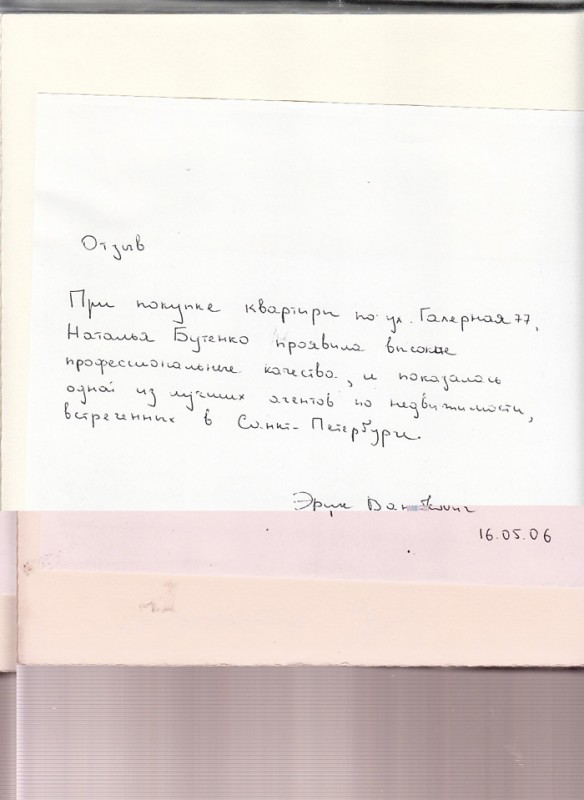 Отзыв
При покупке квартири по ул. Галерная 77,
Наталья Бутенко проявила високые
профессиональные качества, и показалась
одной из лучших агентов по недвижимости,
встреченных в Санкт-Петербурге.
Эрик
16.05.06